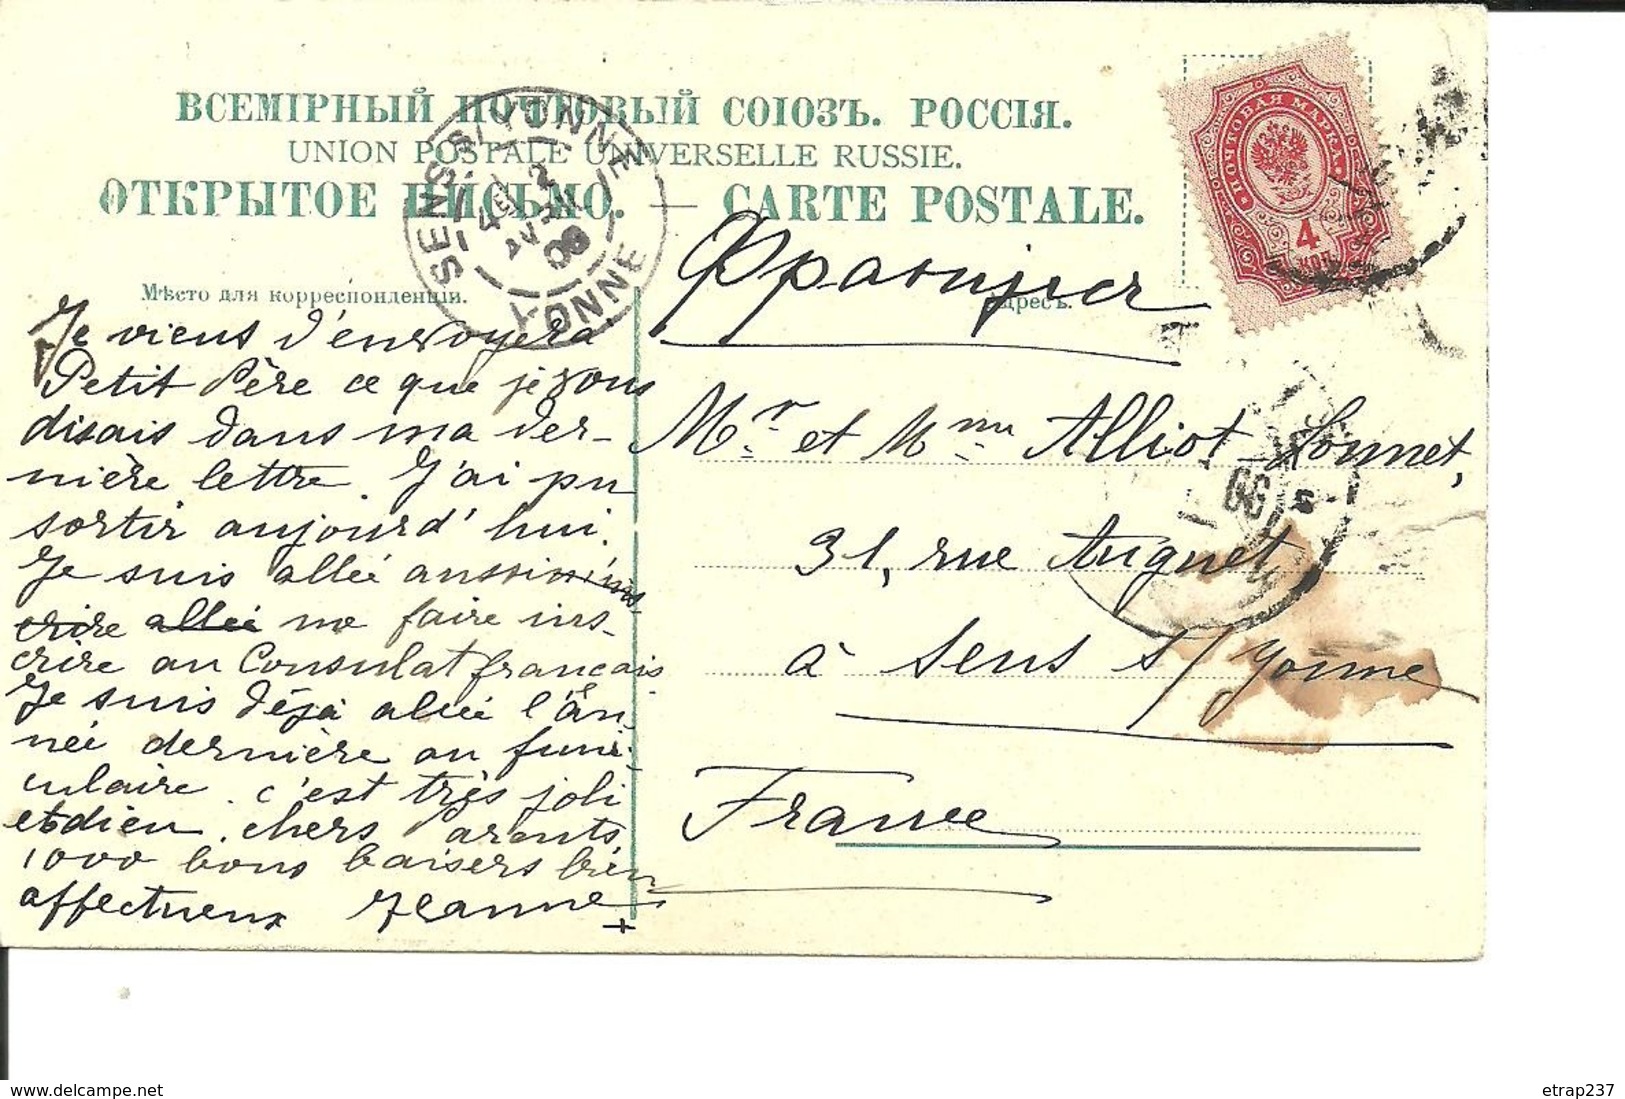 ВСЕМІРНЫЙ ПОЧТОВЫЙ СОЮЗЪ. РОССІЯ.
UNION POSTALE UNIVERSELLE RUSSIE.
ОТКРЫТОЕ ПИСЬМО. — CARTE POSTALE.
SENS S/YONNE
YONNE
ПОЧТОВАЯ МАРКА
4
КОП.
Мѣсто для корреспонденціи.
Адресъ.
Je viens d'envoyer a
Petit Père ce que je vous
disais dans ma der-
nière lettre. J'ai pu
sortir aujourd'hui.
Je suis allée aussi m'ins-
crire allée me faire ins-
crire au Consulat français
Je suis déjà allée l'an-
née dernière au funi-
culaire. c'est très joli
et dieu. chers Parents
1000 bons baisers bien
affectueux Jeanne
Франція
Mr. et Mme Alliot-Sonnet,
31, rue Auguet
à Sens s/ Yonne
France
delcampe.net
etrap237